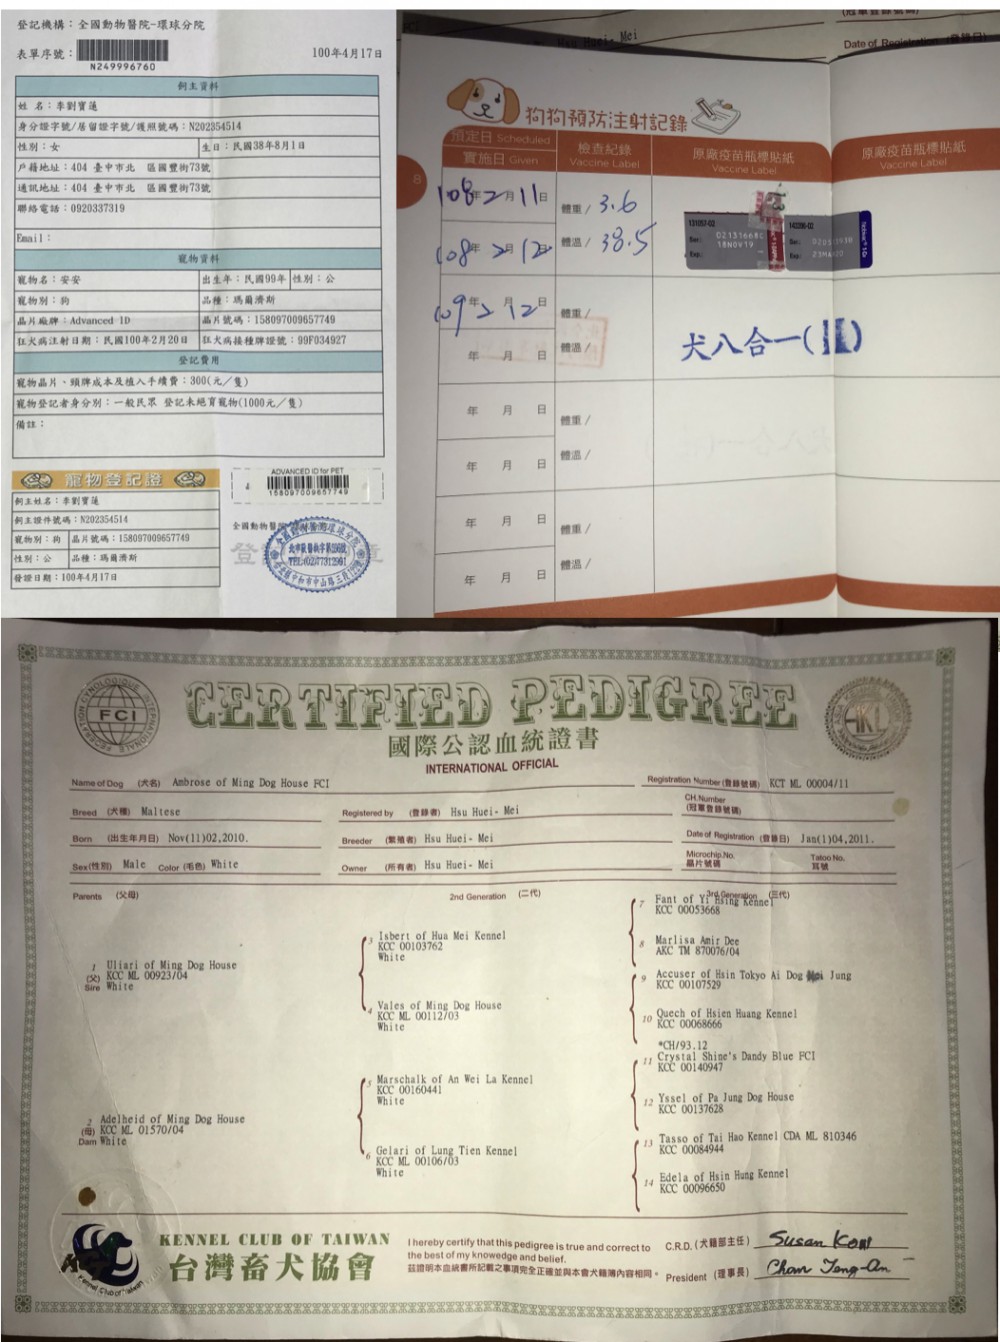 登記機構：全國動物醫院-環球分院
表單序號：
N249996760
100年4月17日
飼主資料
姓 名：李劉寶蓮
身分證字號/居留證字號/護照號碼：N202354514
性別：女 生日：民國38年8月1日
戶籍地址：404 臺中市北 區國豐街73號
通訊地址：404 臺中市北 區國豐街73號
聯絡電話：0920337319
Email：
寵物資料
寵物名：安安 出生年：民國99年 性別：公
寵物別：狗 品種：瑪爾濟斯
晶片廠牌：Advanced ID 晶片號碼：158097009657749
狂犬病注射日期：民國100年2月20日 狂犬病接種牌證號：99F034927
登記費用
寵物晶片、頸牌成本及植入手續費：300(元／隻)
寵物登記者身分別：一般民眾 登記未絕育寵物(1000元／隻)
備註：
寵物登記證
飼主姓名：李劉寶蓮
飼主證件號碼：N202354514
寵物別：狗 晶片號碼：158097009657749
性別：公 品種：瑪爾濟斯
發證日期：100年4月17日
ADVANCED ID for PET
158097009657749
全國動物醫院
登
Hsu Huei- Mei
Date of Registration (登錄日)
狗狗預防注射記錄
預定日 Scheduled
實施日 Given
檢查紀錄
Vaccine Label
原廠疫苗瓶標貼紙
Vaccine Label
原廠疫苗瓶標貼紙
Vaccine Label
8
108年2月11日
體重／3.6
108年2月12日
體溫／38.5
131057-02
Ser: 02131668C
Exp: 18NOV19
Ser:
Exp:
109年2月12日
體重／
年 月 日
體溫／
犬八合一(
年 月 日
體重／
年 月 日
體溫／
年 月 日
體重／
年 月 日
體溫／
FCI
CERTIFIED PEDIGREE
國際公認血統證書
INTERNATIONAL OFFICIAL
Name of Dog (犬名) Ambrose of Ming Dog House FCI
Registration Number (登錄號碼) KCT ML 00004/11
Breed (犬種) Maltese
Registered by (登錄者) Hsu Huei- Mei
CH.Number
(冠軍登錄號碼)
Born (出生年月日) Nov(11)02,2010.
Breeder (繁殖者) Hsu Huei- Mei
Date of Registration (登錄日) Jan(1)04,2011.
Sex(性別) Male Color (毛色) White
Owner (所有者) Hsu Huei- Mei
Microchip.No.
晶片號碼
Tatoo No.
耳號
Parents (父母)
2nd Generation (二代)
3rd Generation (三代)
1 Uliari of Ming Dog House
(父) KCC ML 00923/04
Sire White
2 Adelheid of Ming Dog House
(母) KCC ML 01570/04
Dam White
3 Isbert of Hua Mei Kennel
KCC 00103762
White
4 Vales of Ming Dog House
KCC ML 00112/03
White
5 Marschalk of An Wei La Kennel
KCC 00160441
White
6 Gelari of Lung Tien Kennel
KCC ML 00106/03
White
7 Fant of Yi Hsing Kennel
KCC 00053668
8 Marlisa Amir Dee
AKC TM 870076/04
9 Accuser of Hsin Tokyo Ai Dog Jung
KCC 00107529
10 Quech of Hsien Huang Kennel
KCC 00068666
*CH/93.12
11 Crystal Shine's Dandy Blue FCI
KCC 00140947
12 Yssel of Pa Jung Dog House
KCC 00137628
13 Tasso of Tai Hao Kennel CDA ML 810346
KCC 00084944
14 Edela of Hsin Hung Kennel
KCC 00096650
KENNEL CLUB OF TAIWAN
台灣畜犬協會
I hereby certify that this pedigree is true and correct to
the best of my knowedge and belief.
茲證明本血統書所記載之事項完全正確並與本會犬籍簿內容相同。
C.R.D. (犬籍部主任) Susan Kow
President (理事長) Chan Teng-An